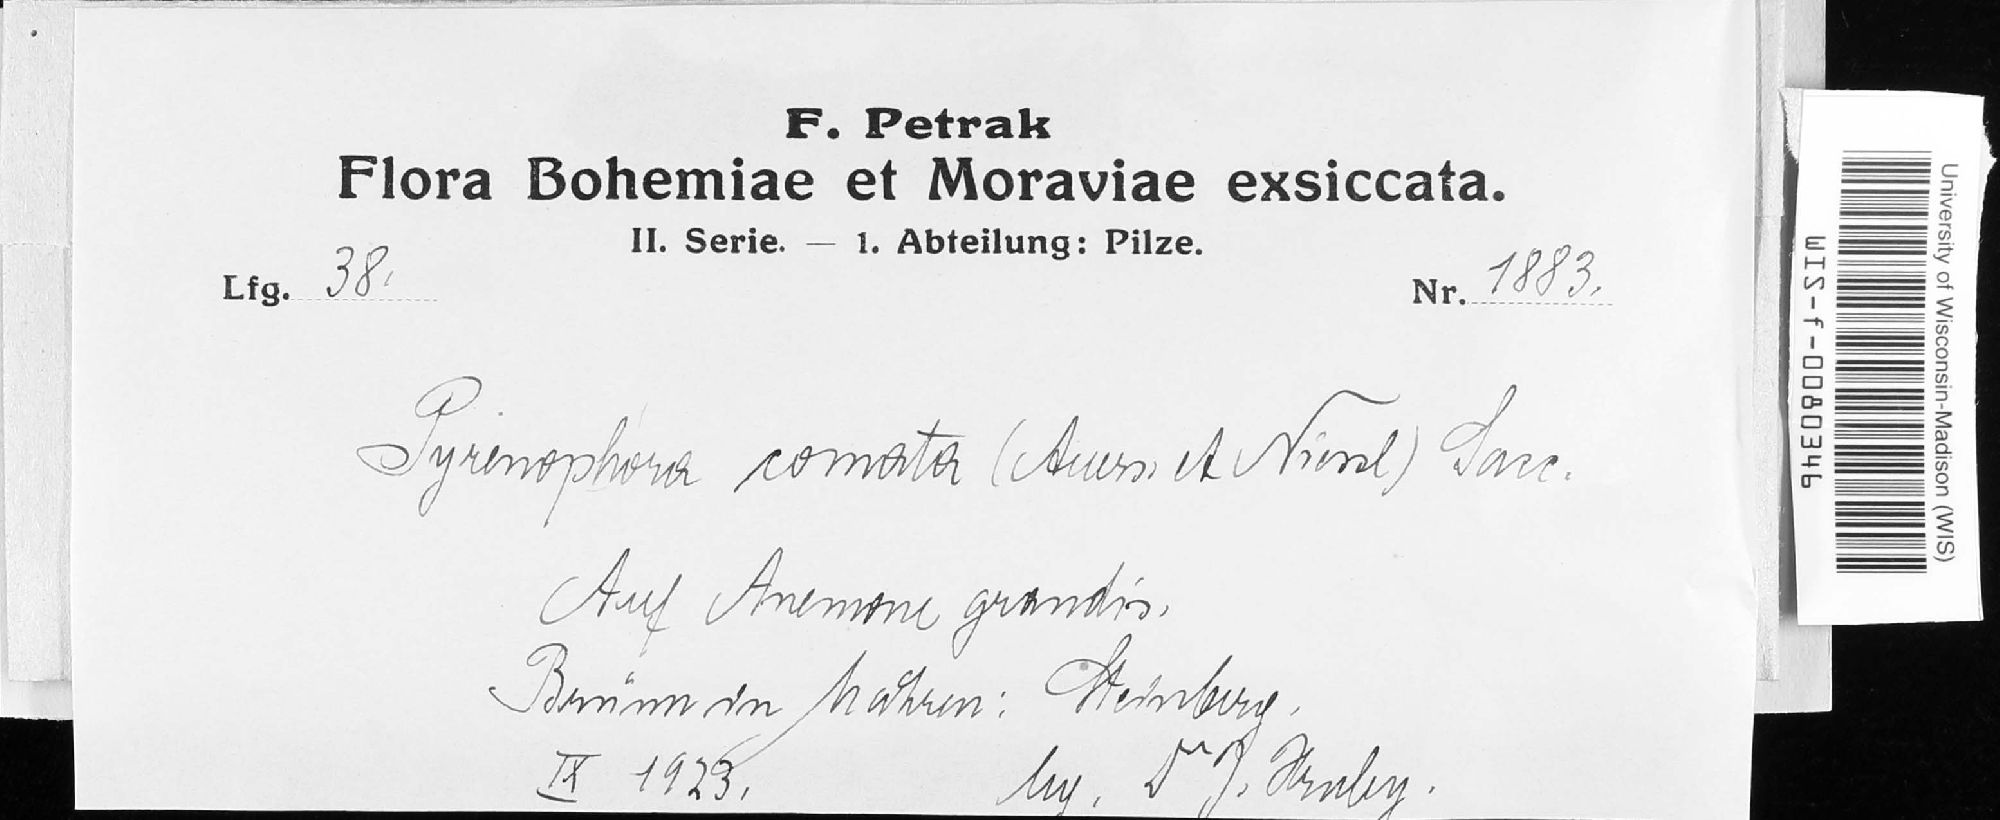 F. Petrak
Flora Bohemiae et Moraviae exsiccata.
II. Serie. — 1. Abteilung: Pilze.
Lfg. 38.
Nr. 1883.
Pyrenophora comata (Auersw. et Niessl) Sacc.
Auf Anemone grandis.
Brünn in Mähren: Steinberg.
IX 1923. leg. Dr J. Hruby.
University of Wisconsin-Madison (WIS)
WIS-f-0080346